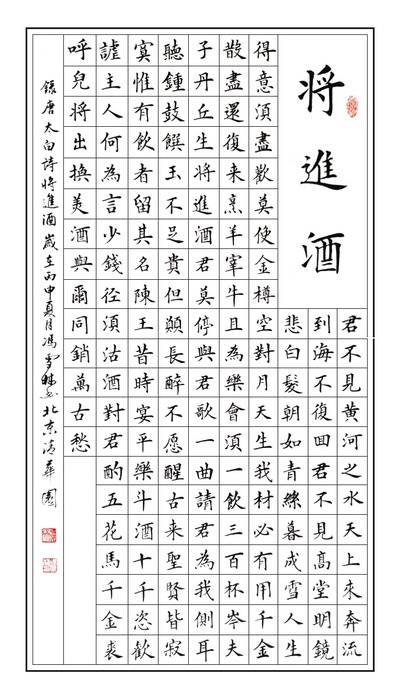 将進酒
君不見黃河之水天上來奔流
到海不復回君不見高堂明鏡
悲白髮朝如青絲暮成雪人生
得意須盡歡莫使金樽空對月天生我材必有用千金
散盡還復来烹羊宰牛且為樂會須一飲三百杯岑夫
子丹丘生將進酒君莫停與君歌一曲請君為我側耳
聽鍾鼓饌玉不足貴但願長醉不愿醒古来聖賢皆寂
寞惟有飲者留其名陳王昔時宴平樂斗酒十千恣歡
謔主人何為言少錢径須沽酒對君酌五花馬千金裘
呼兒将出換美酒與爾同銷萬古愁
錄唐太白詩將進酒歲在丙申夏月馮雪林書北京清華園